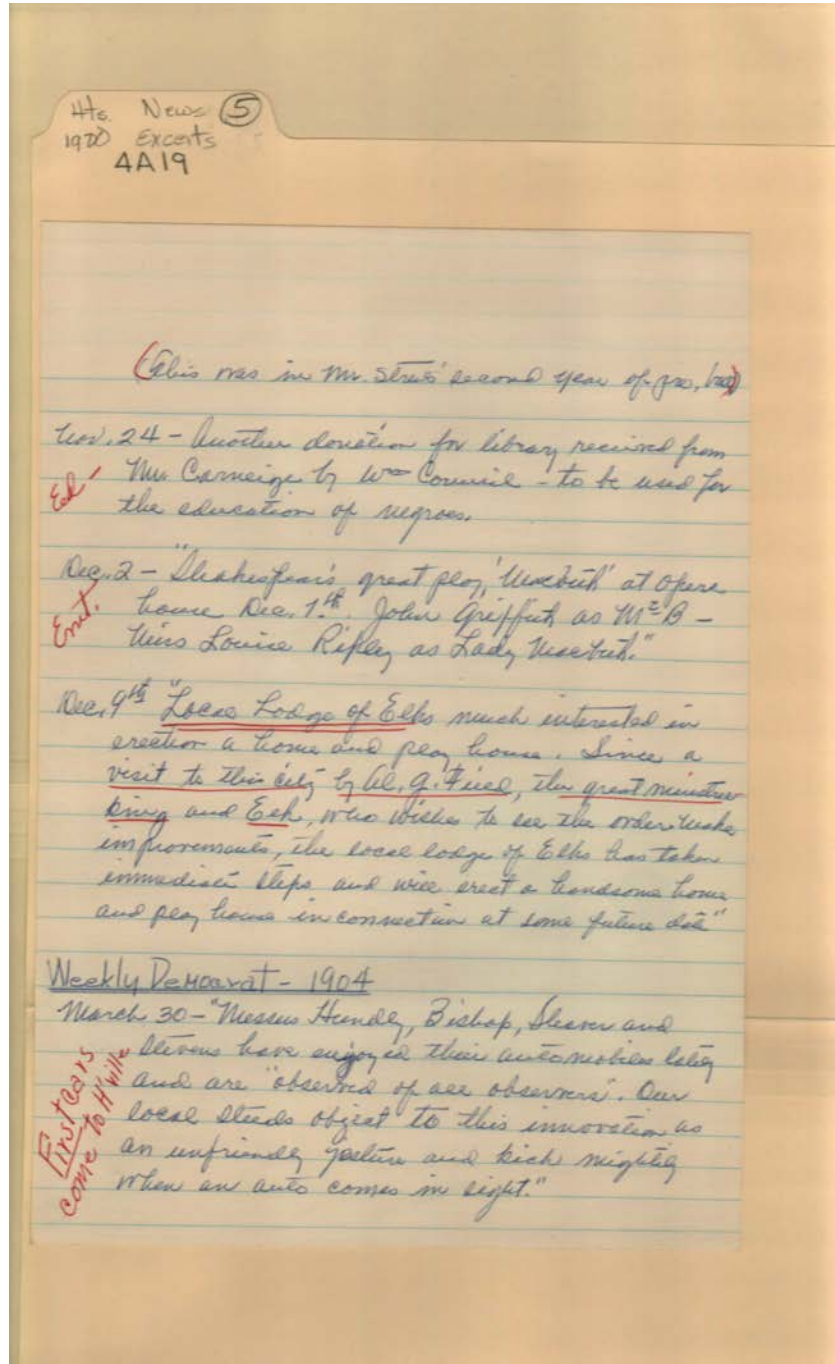 Hts. News 5
1900 Excerts
4A19
(This was in Mr. Street's second year of
Nov. 24 - Another donation for library received from
Ed - Mr. Carneige by Wm Council - to be used for
the education of negroes.
Dec. 2 - "Shakespear's great play, 'Macbeth' at opera
Ent. house Dec. 7th. John Griffith as McB -
Miss Louise Ripley as Lady Macbeth."
Dec. 9th "Local Lodge of Elks much interested in
erection a home and play house. Since a
visit to this city by Al. G. Field, the great minstrel
king and Elk, who wishes to see the order make
improvements, the local lodge of Elks has taken
immediate steps and will erect a handsome home
and play house in connection at some future date"
Weekly Democrat - 1904
March 30 - "Messrs Hundley, Bishop, Shaver and
Stevens have enjoyed their automobiles lately
and are "observed of all observers". Our
local steeds object to this innovation as
an unfriendly gesture and kick mightily
when an auto comes in sight."
First cars
come to H'ville